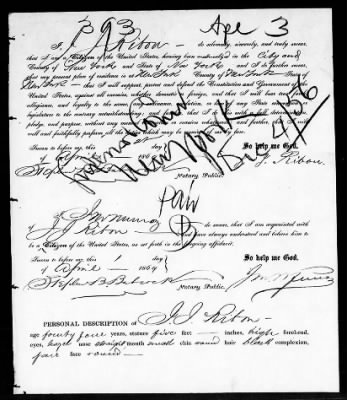 P 93 Age 3
I, J J Ribon do solemnly, sincerely, and truly swear,
that I am a Citizen of the United States, having been
City and
County of New York and State of New York
that my general place of residence is at New York County of New York State of
New York that I will support, protect and defend the Constitution and Government of the
United States, against all enemies, whether domestic or foreign, and that I will bear true faith,
allegiance, and loyalty to the same, any ordinance, resolution, or law of any State
legislature to the contrary notwithstanding; and further, that I do this with a full determination,
pledge, and purpose, without any mental reservation or evasion whatsoever; and further, that I will
well and faithfully perform all the duties which may be required of me by law.
So help me God.
Sworn to before me, this
day
April 186
J. Ribon
Notary Public.
New York
Paid
I, J M Murray do swear, that I am acquainted with
J J Ribon and have always understood and believe him
to be a Citizen of the United States, as set forth in the foregoing affidavit.
Sworn to before me, this 1 day
So help me God.
of April 1864
Stephen B Babcock
Notary Public.
PERSONAL DESCRIPTION OF J. J. Ribon
age fourty four years, stature five feet — inches, high forehead,
eyes, hazel nose straight mouth small chin round hair black complexion,
fair face round